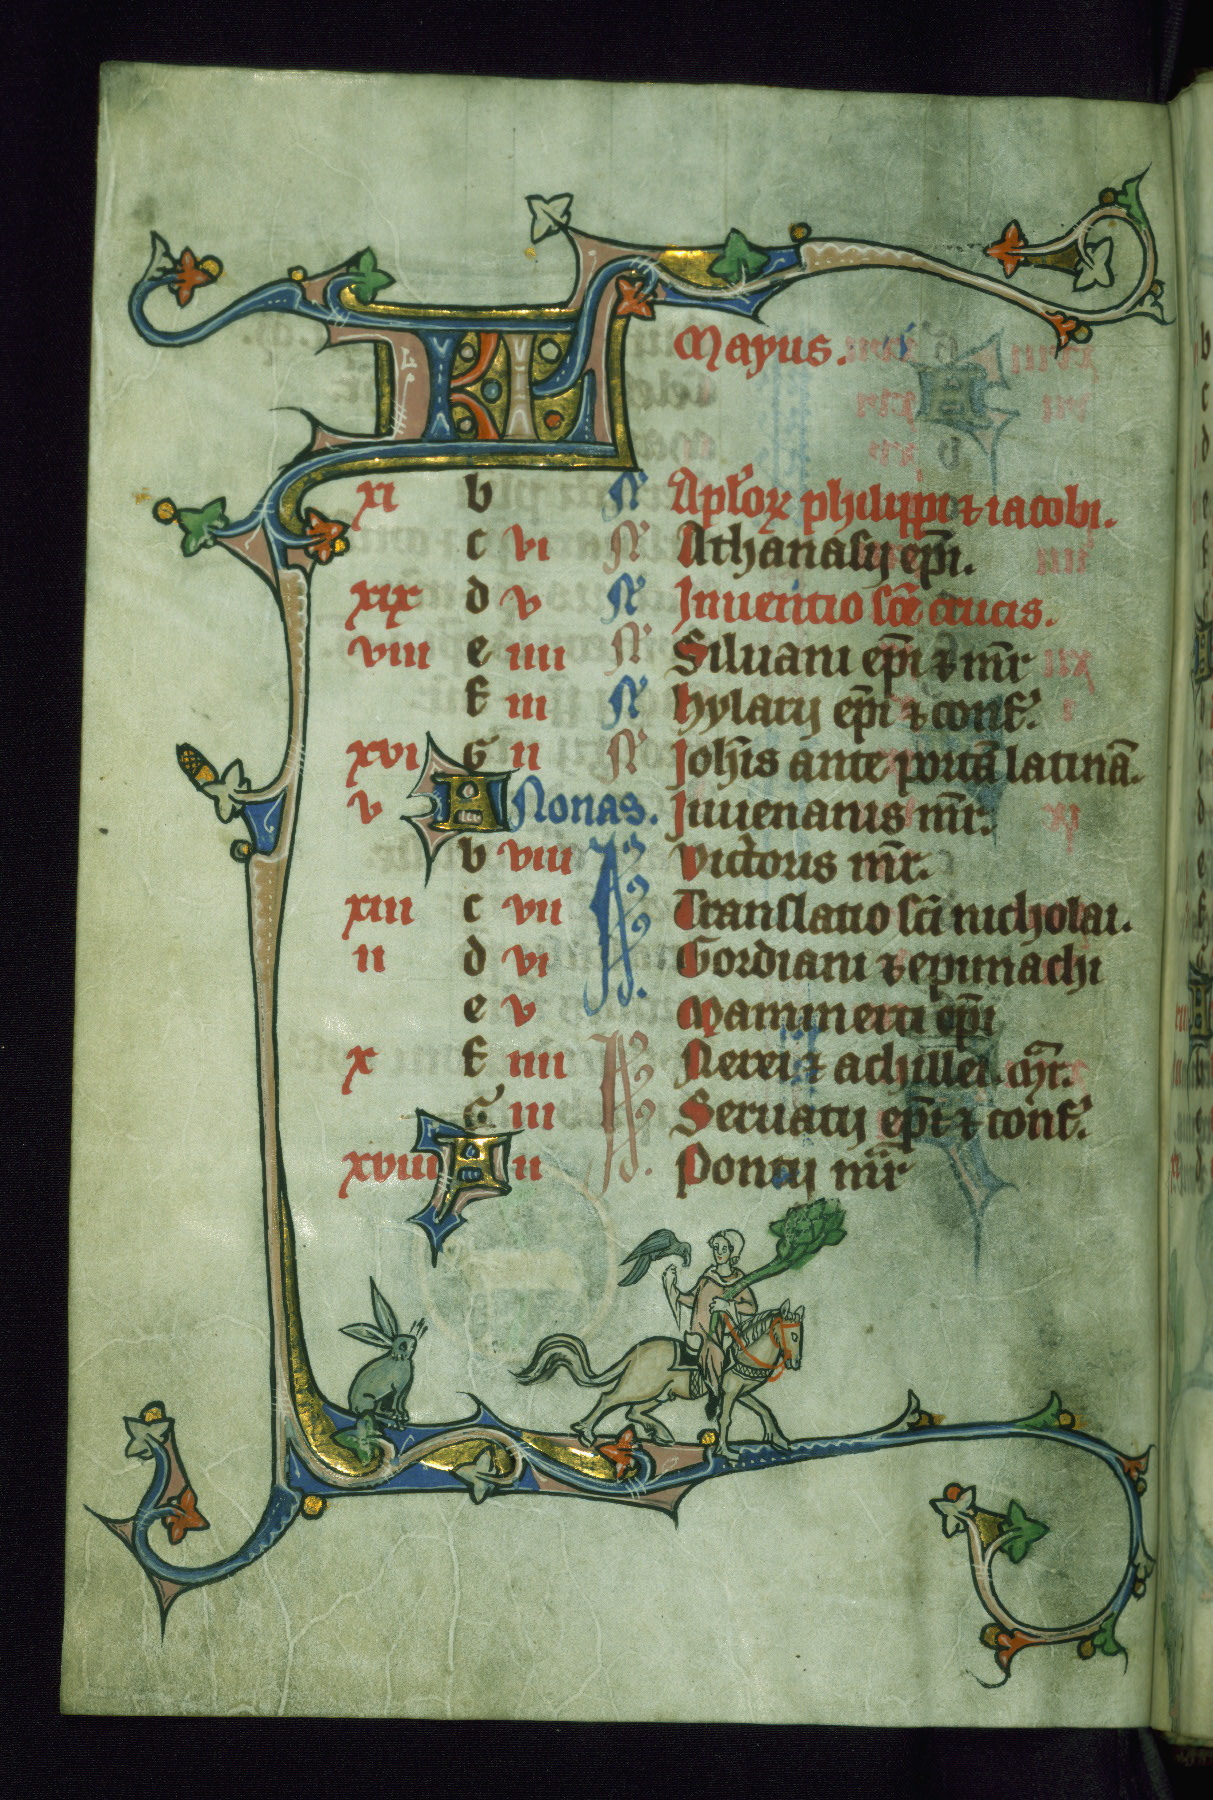 KL Mayus.
xi b N Aplor̄ philippi & iacobi.
c vi N Athanasij ep̄i.
xix d v N Inuentio sc̄e crucis.
viii e iiii N Siluani ep̄i & m̄r
f iii N hylarij ep̄i & conf.
xvi G ii N Ioh̄is ante portā latinā.
v A Nonas. Iuuenanis m̄r.
b viii Id. Victoris m̄r.
xiii c vii Translatio sc̄i nicholai.
ii d vi Gordiani & epimachi
e v Mammerti ep̄i
x f iiii Id. Nerei & achillei. m̄r.
G iii Seruatij ep̄i & conf.
xviii A ii Pontij m̄r